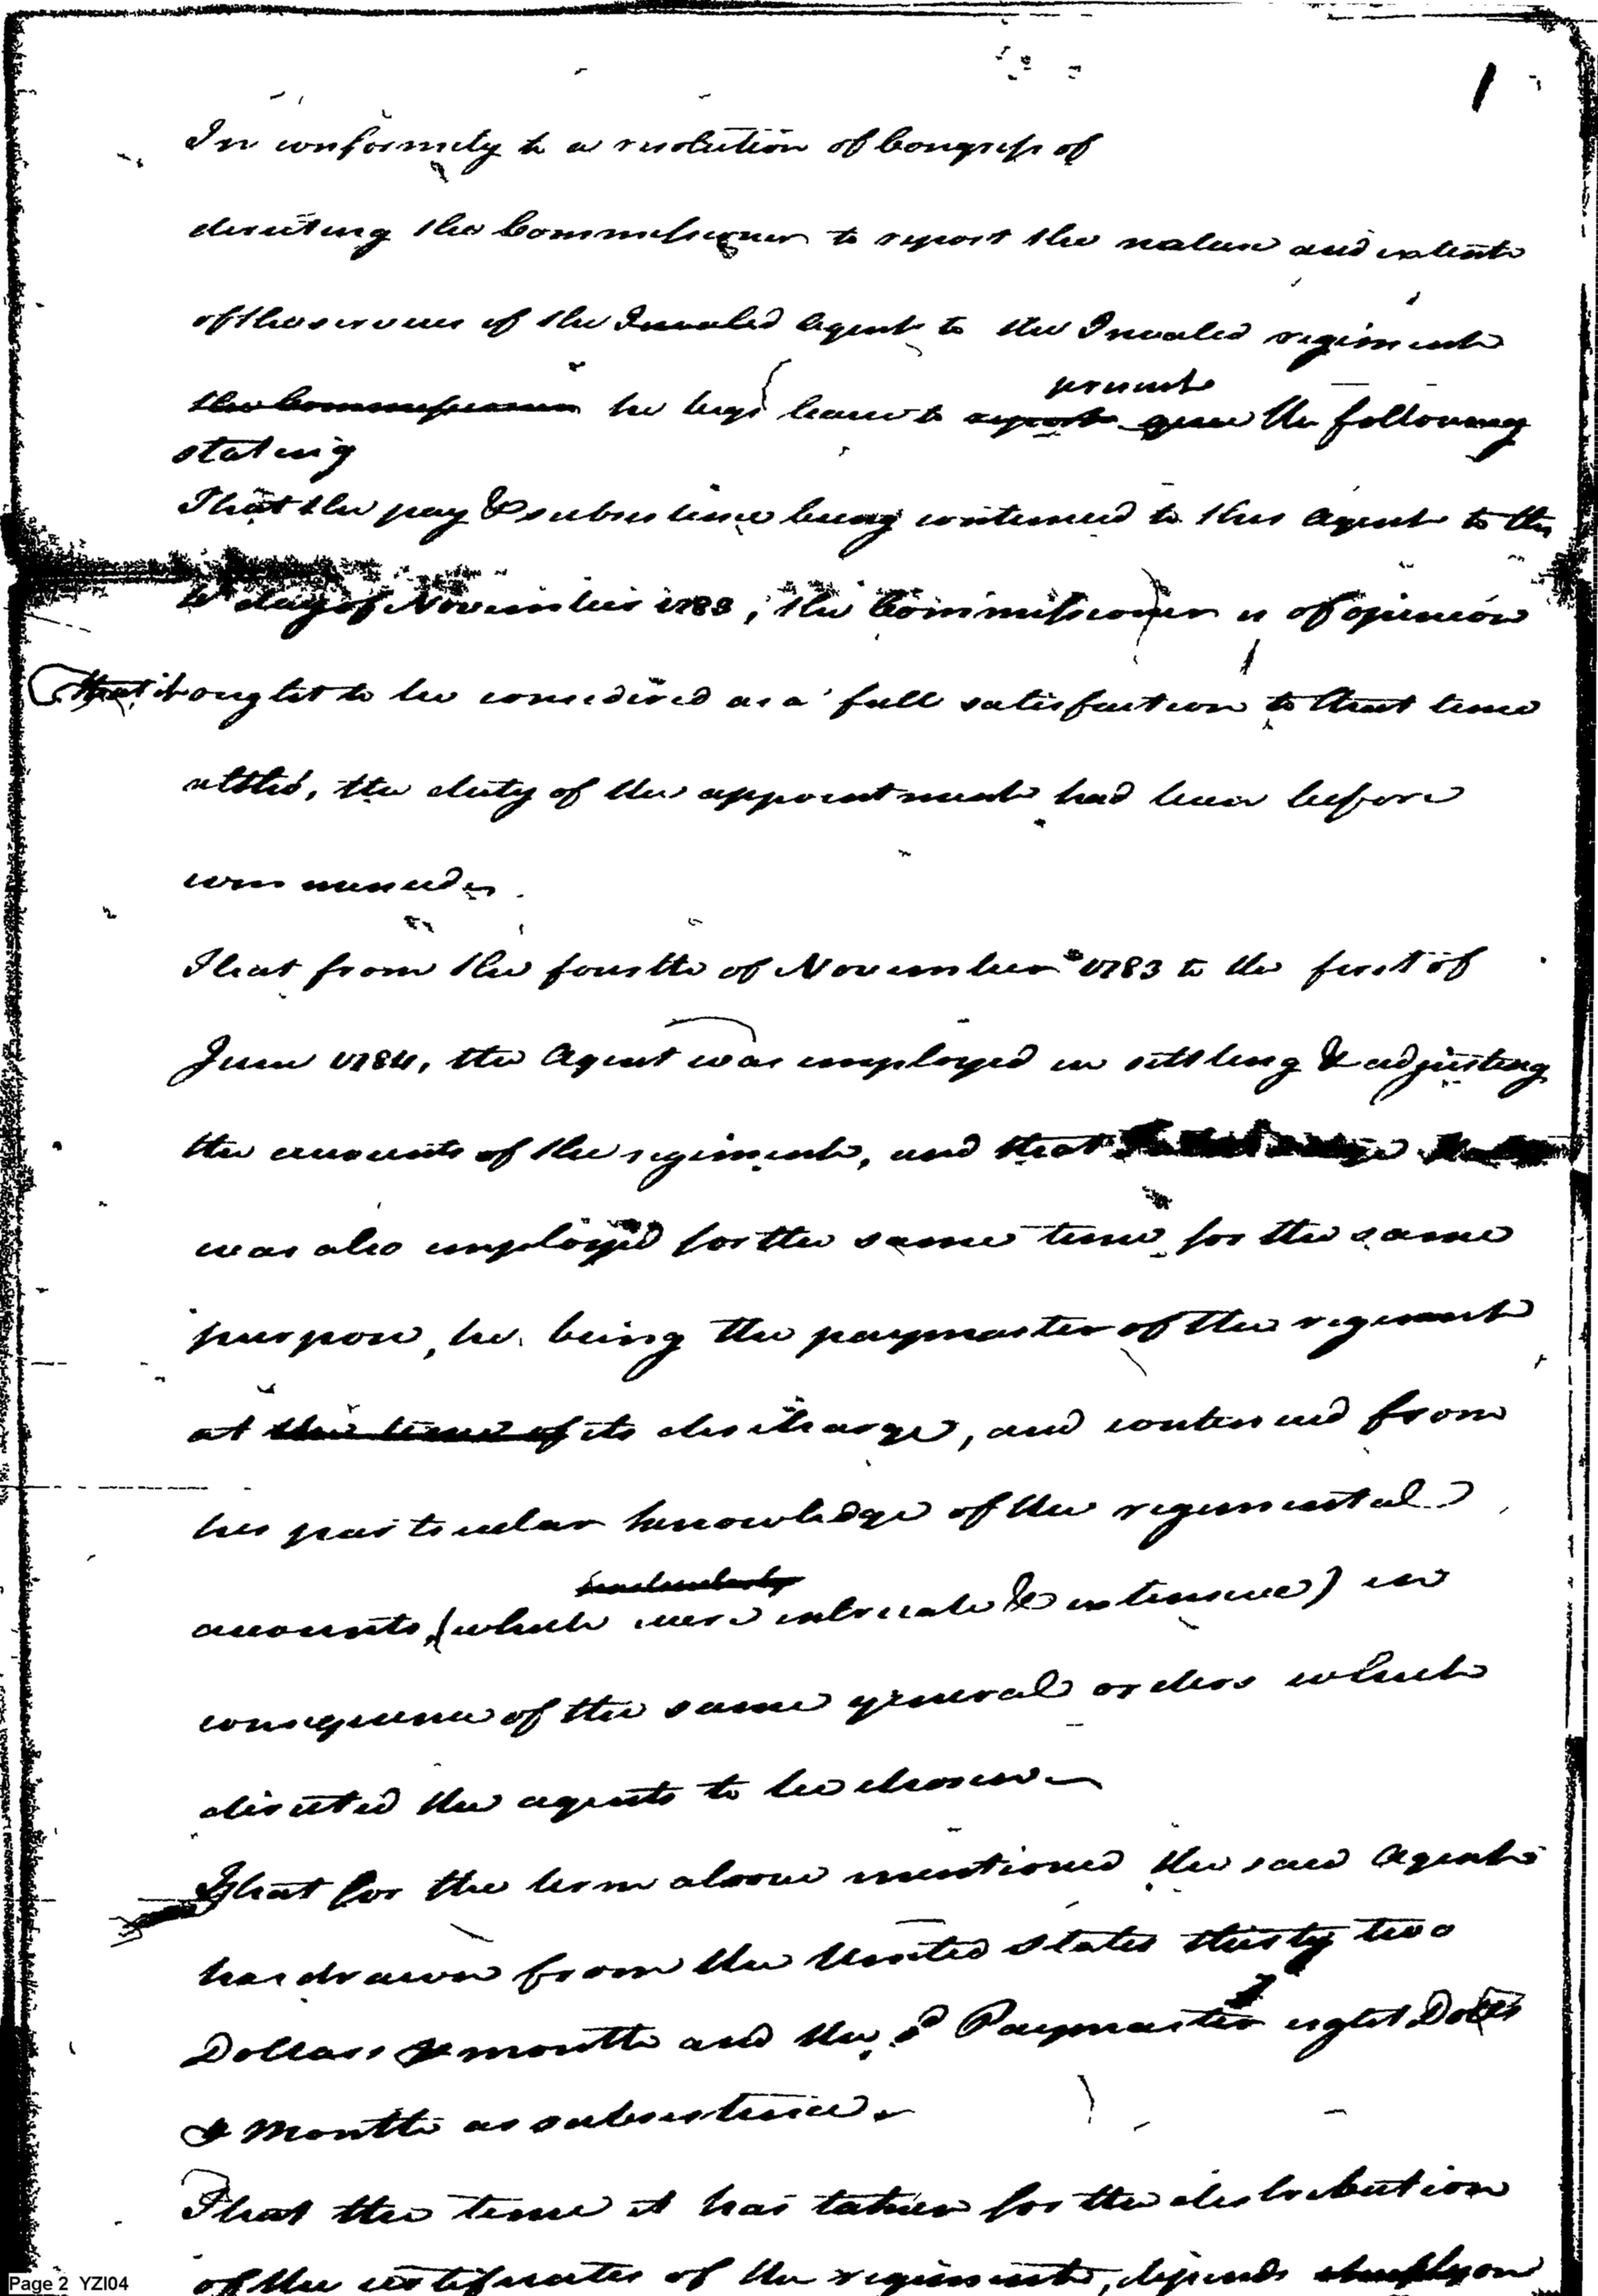 1
In conformity to a resolution of Congress of
directing the Commissioner to report the nature and extent
of the services of the Invalid Agent to the Invalid regiment
the Commissioner he begs leave to report give the following
present
stating
That the pay & subsistence being continued to this Agent to the
4th day of November 1783, the Commissioner is of opinion
that it ought to be considered as a full satisfaction to that time
altho', the duty of the appointment had been before
commenced.
That from the fourth of November 1783 to the first of
June 1784, the Agent was employed in settling & adjusting
the accounts of the regiment, and that
was also employed for the same time for the same
purpose, he being the paymaster of the regiment
at the time of its discharge, and continued from
his particular knowledge of the regimental
accounts, (which were intricate & extensive) in
consequence of the same general orders which
directed the agents to be chosen
That for the term above mentioned the said Agent
has drawn from the United States thirty two
Dollars P month and the sd Paymaster eight Dolls
P Month as subsistence.
That the time it has taken for the distribution
of the certificates of the regiment, depends on
Page 2 YZI04